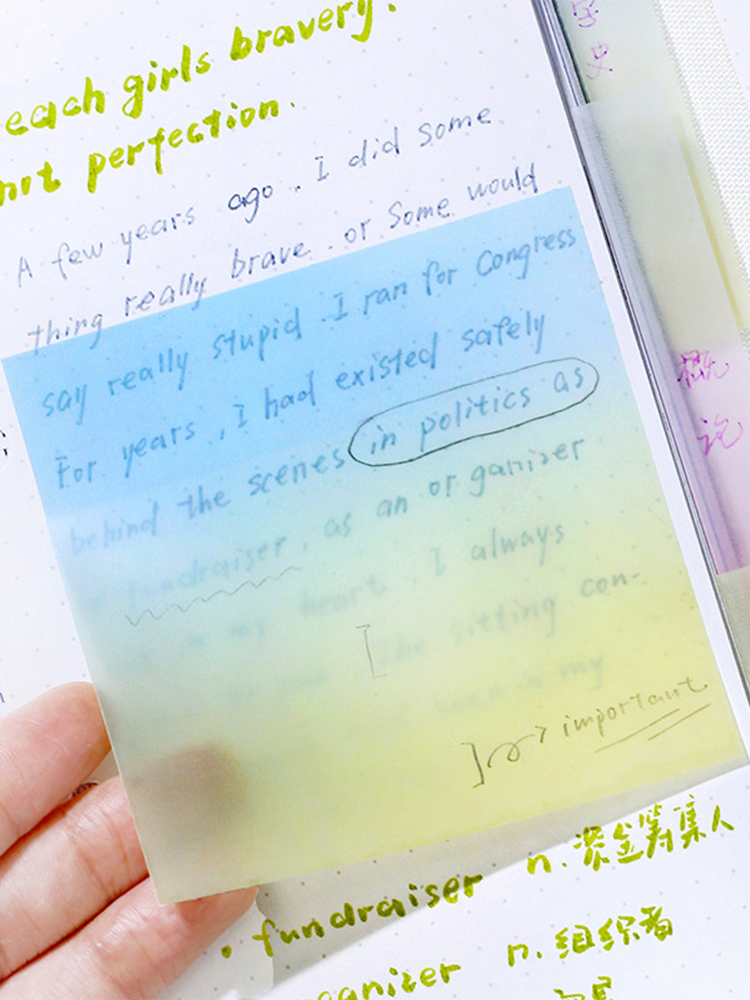 each girls bravery.
not perfection.
A few years ago. I did some
thing really brave. or Some would
say really stupid. I ran for Congress
For years, I had existed safely
behind the scenes in politics as
fundraiser, as an organizer
in my heart. I always
[The sitting con-
my
] → important
• fundraiser n. 资金筹集人
organizer n. 组织者
历史
概论